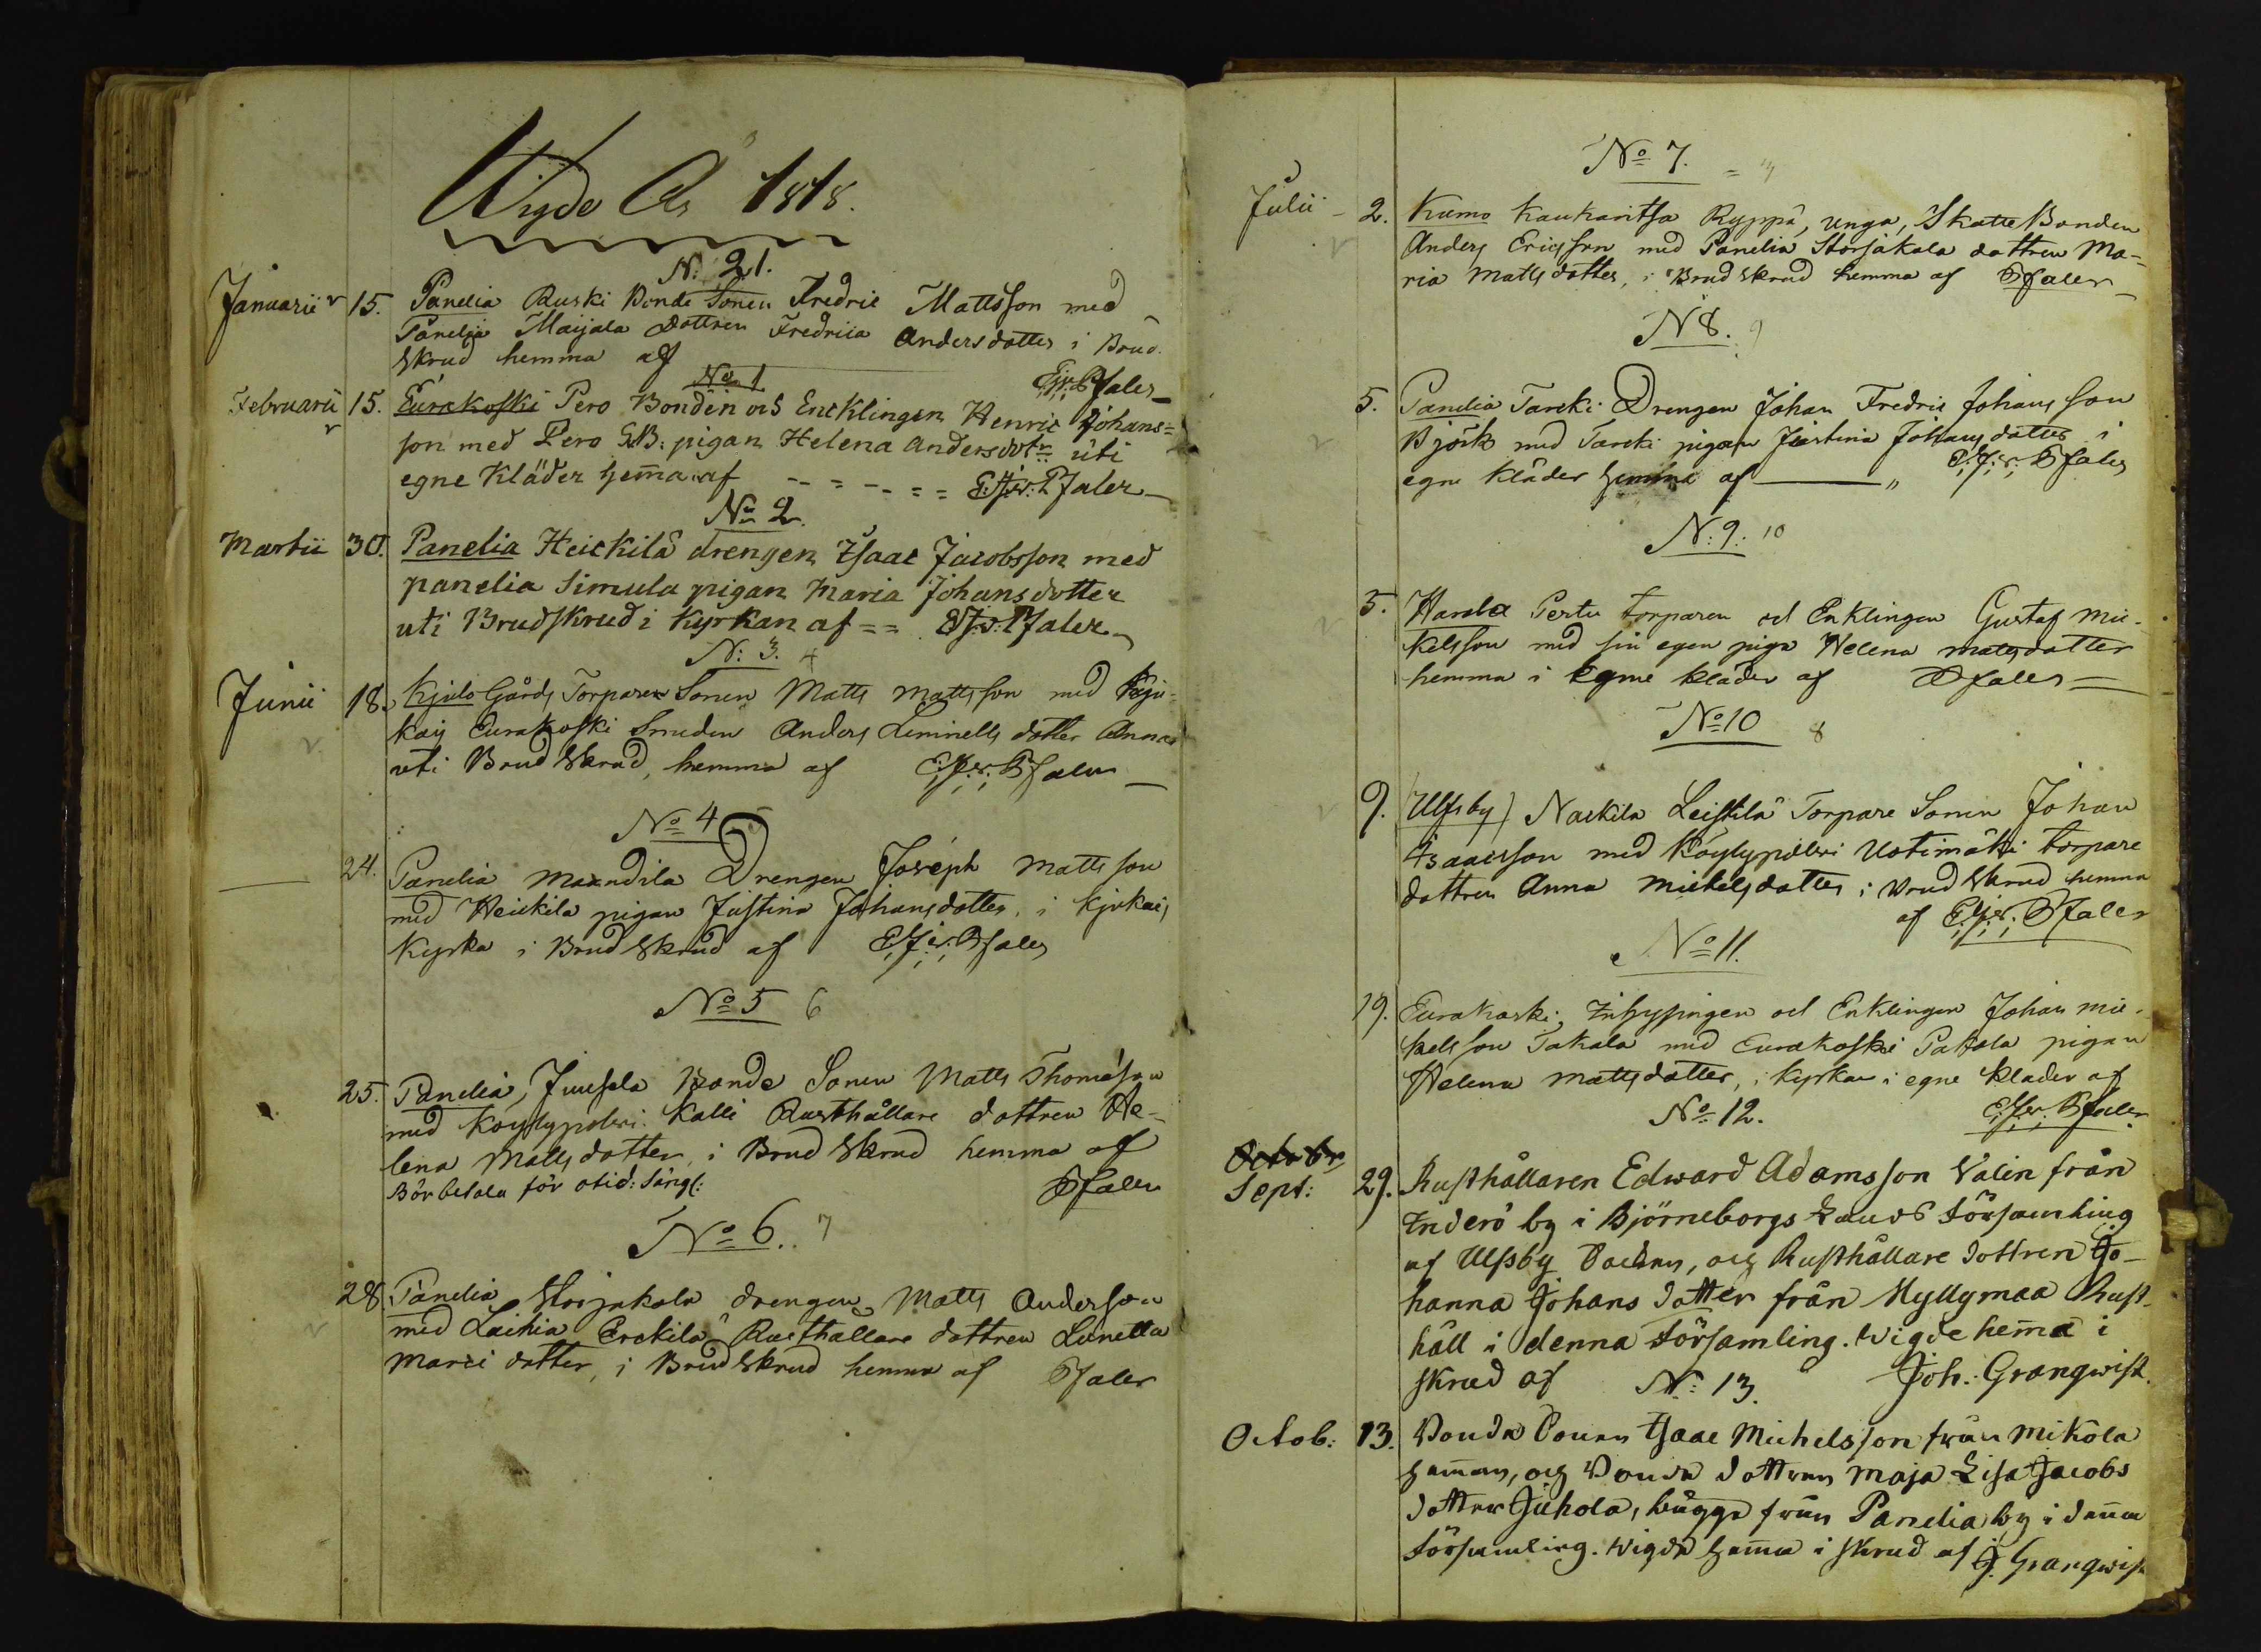 Wigde År 1818.
N: 21.
Januarii 15. Panelia Ruski Bonde Sonen Fredric Mattsson med
Panelia Maijala Dottren Fredrica Andersdotter i Brud
skrud hemma af
Pfaler
No 1
Februarii 15. Eurakoski Pero Bonden och Encklingen Henric Johans=
son med Pero pigan Helena Andersdotr uti
egne Kläder hema af -- = -- = = Pfaler
No 2.
Martii 30. Panelia Heickilä drengen Isaac Jacobsson med
panelia Simula pigan Maria Johansdotter
uti Brudskrud i Kyrkan af == Pfaler
N: 3. 4
Junii 18. Kjulo Gårds Torpare Sonen Matts Mattsson med Kju=
kais Eurakoski Smeden Anders Liminells dotter Anna
uti Brud Skrud, hemma af Pfaler
No 4 5
24. Panelia Maxndila Drengen Joseph Mattsson
med Heickila pigan Justina Johansdotter, i Kjukais
Kyrka i Brud Skrud af Pfaler
No 5 6
25. Panelia, Juusela Bonde Sonen Matts Thomasson
medKöylypolvi Kalli Rusthållare dottren He-
lena Mattsdotter, i Brud Skrud hemma af
Bör betala för otid: Sängl: Pfaler
No 6. 7
28 Panelia Storjakola drengen Matts Andersson
med Laihia Erckilä Rusthållare dottren Lunetta
Marci dotter, i Brud Skrud hemma af Pfaler
No 7.
Julii - 2. Kumo Kaukaritsa Ryppä, unga, Skatte Bonden
Anders Ericsson med Panelia Storjakala dottren Ma-
ria Mattsdotter, i Brud skrud hemma af Pfaler
N 8. 9
5. Panelia Tarcki Drengen Johan Fredric Johansson
Björk med Tarcki pigan Justina Johansdotter i
egne kläder hemma af Pfaler
N: 9: 10
5. Harola Pertu torparen och Enklingen Gustaf Mic-
kelsson med sin egen piga Helena Mattsdotter
hemma i egne kläder af Pfaler
No 10 8
9. (Ulfsby) Nackila Leistilä Torpare Sonen Johan
Isaacsson med Köylypolvi Uotimäki torpare
dottren Anna Michelsdotter i Brud Skrud hemma
af Pfaler
No 11.
19. Eurakoski, Inhysingen och Enklingen Johan Mic-
kelsson Takala med Eurakoski Pakola pigan
Helena Mattsdotter, i Kyrkan i egne kläder af
No 12. Pfaler
Octobr
Sept: 29. Rusthållaren Edward Adamsson Valin från
Inderö by i Björneborgs Lands Församling
af Ulfsby Socken, och Rusthållare dottren Jo-
hanna Johans dotter från Myllymaa Rust-
håll i denna Församling. Wigde hema i
skrud af Joh: Granqwist.
N: 13.
Octob: 13. Bonde Sonen Isaac Michelsson från Mikola
hemman, och Bonde dottren Maja Lisa Jacobs
dotter Juhola, bägge från Panelia by i denna
Församling. Wigde hemma i skrud af J. Granqwist